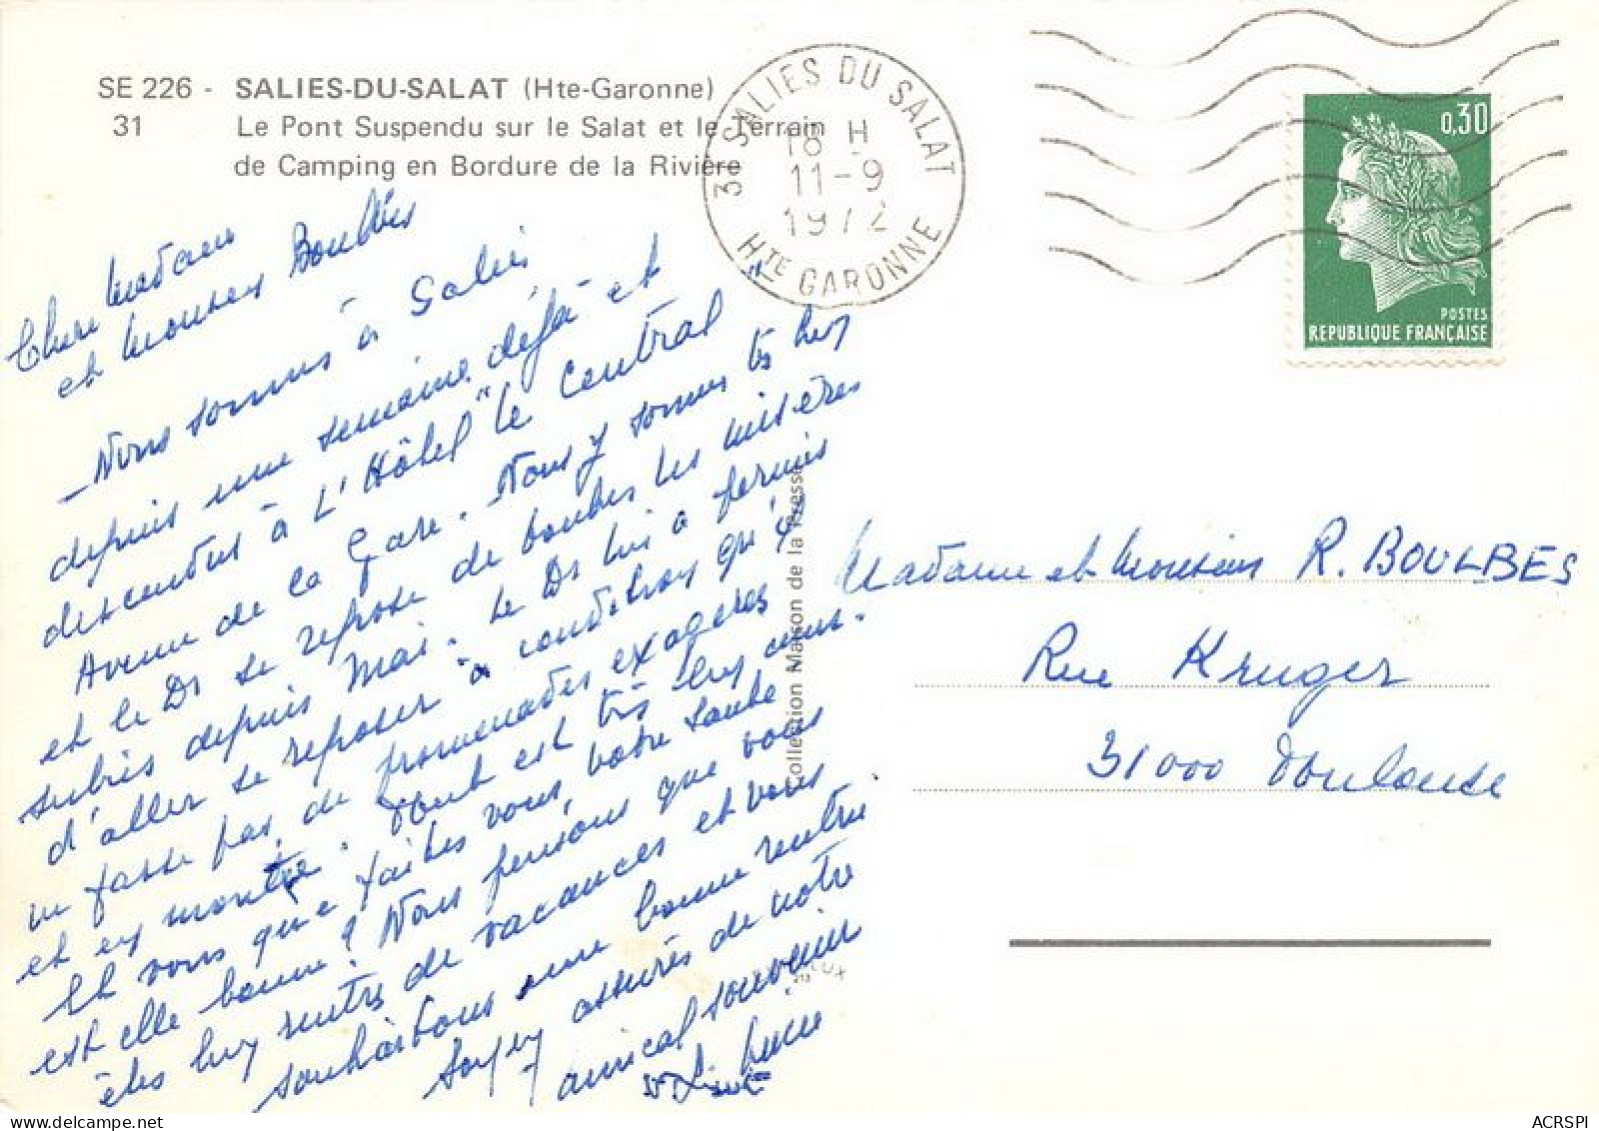 SE 226 - SALIES-DU-SALAT (Hte-Garonne)
31 Le Pont Suspendu sur le Salat et le Terrain
de Camping en Bordure de la Rivière
31 SALIES DU SALAT
18 H
11-9
1972
HTE GARONNE
0,30
POSTES
REPUBLIQUE FRANÇAISE
Chere Madame
et Monsieur Boulbès
- Nous sommes à Salies
depuis une semaine déjà et
descendus à L'Hôtel "Le Central"
Avenue de la Gare. Nous y sommes ts bien
et le Dr se repose de toutes les misères
subies depuis Mai. Le Dr lui a permis
d'aller se reposer à condition qu'il
ne fasse pas de promenades exagérées
et en montée. Tout est très bien ici
Et vous que faites vous, votre santé
est elle bonne? Nous pensons que vous
êtes bien rentrés de vacances et vous
souhaitons une bonne rentrée
Soyez assurés de notre
amical souvenir
Collection Maison de la Presse
Madame et Monsieur R. BOULBES
Rue Kruger
31000 Toulouse
ACRSPI